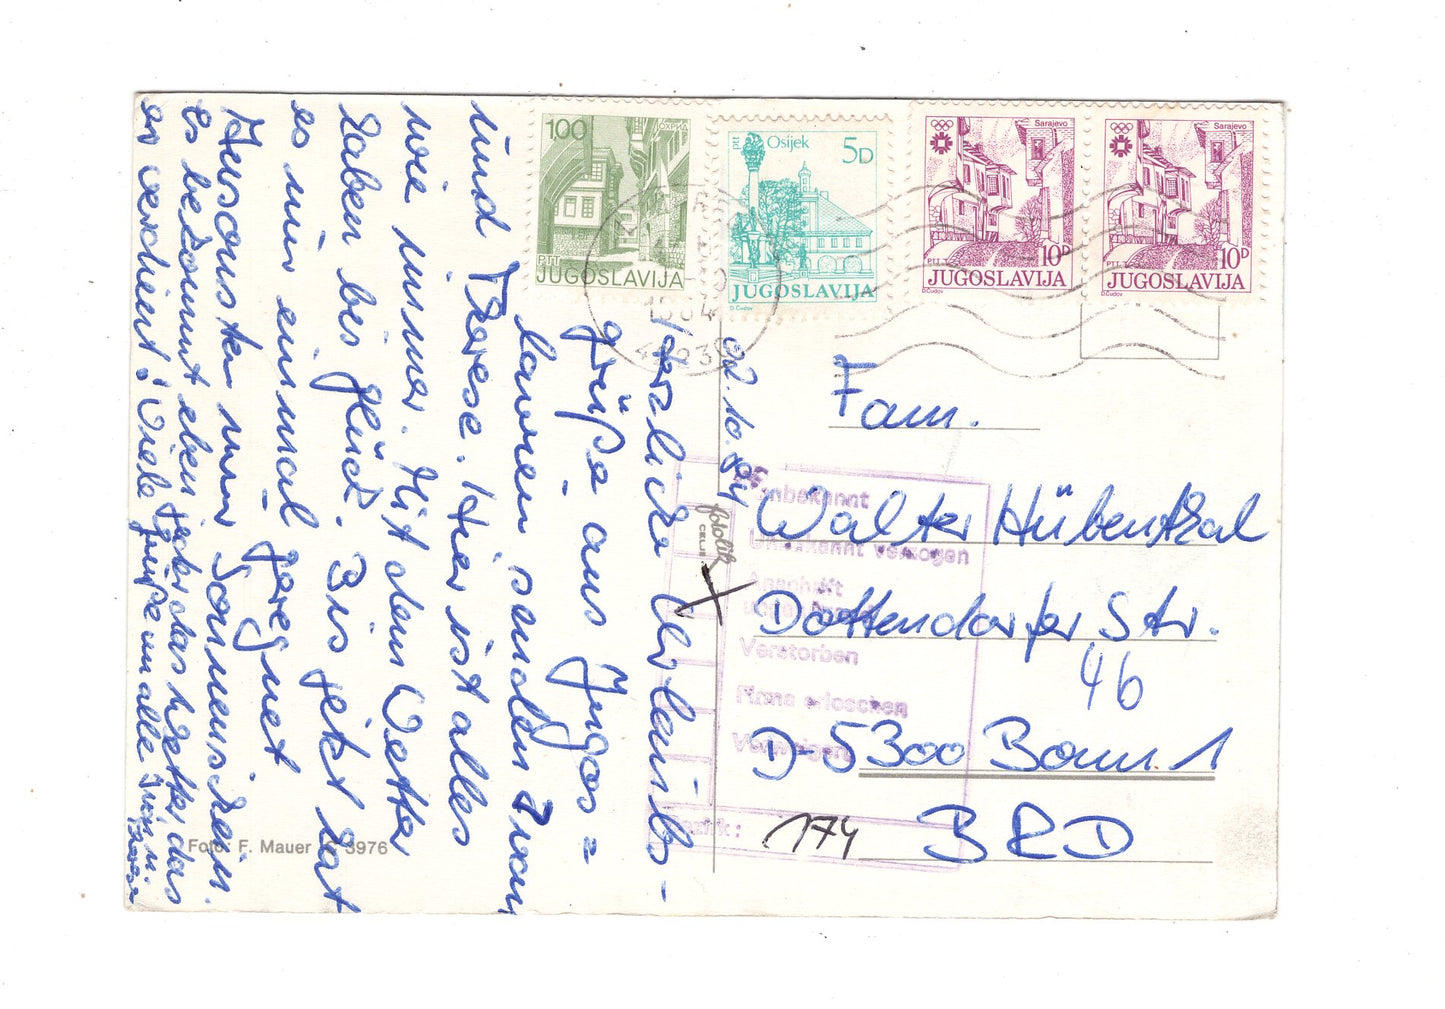 02.10.84
Herzliche Urlaubs-
grüße aus Jugos=
lawien senden Iwan
und Therese. Hier ist alles
wie immer. Mit dem Wetter
haben wir Glück. Bis jetzt hat
es nur einmal geregnet
Ansonsten nur Sonnenschein.
Es bekommt eben jeder das Wetter das
er verdient! Viele Grüße an alle Iwan u.
Therese
Foto: F. Mauer 3976
fotolik
CELJE
100
ОХРИД
PTT
JUGOSLAVIJA
ptt
Osijek
5D
JUGOSLAVIJA
D.Čudov
Sarajevo
PTT
10D
JUGOSLAVIJA
D.Čudov
Sarajevo
PTT
10D
JUGOSLAVIJA
D.Čudov
1984
Fam.
Walter Hübenthal
Dottendorfer Str.
46
D-5300 Bonn 1
BRD
174
Unbekannt
Unbekannt verzogen
Anschrift
Verstorben
Firma erloschen
Verweigert
Bezirk: